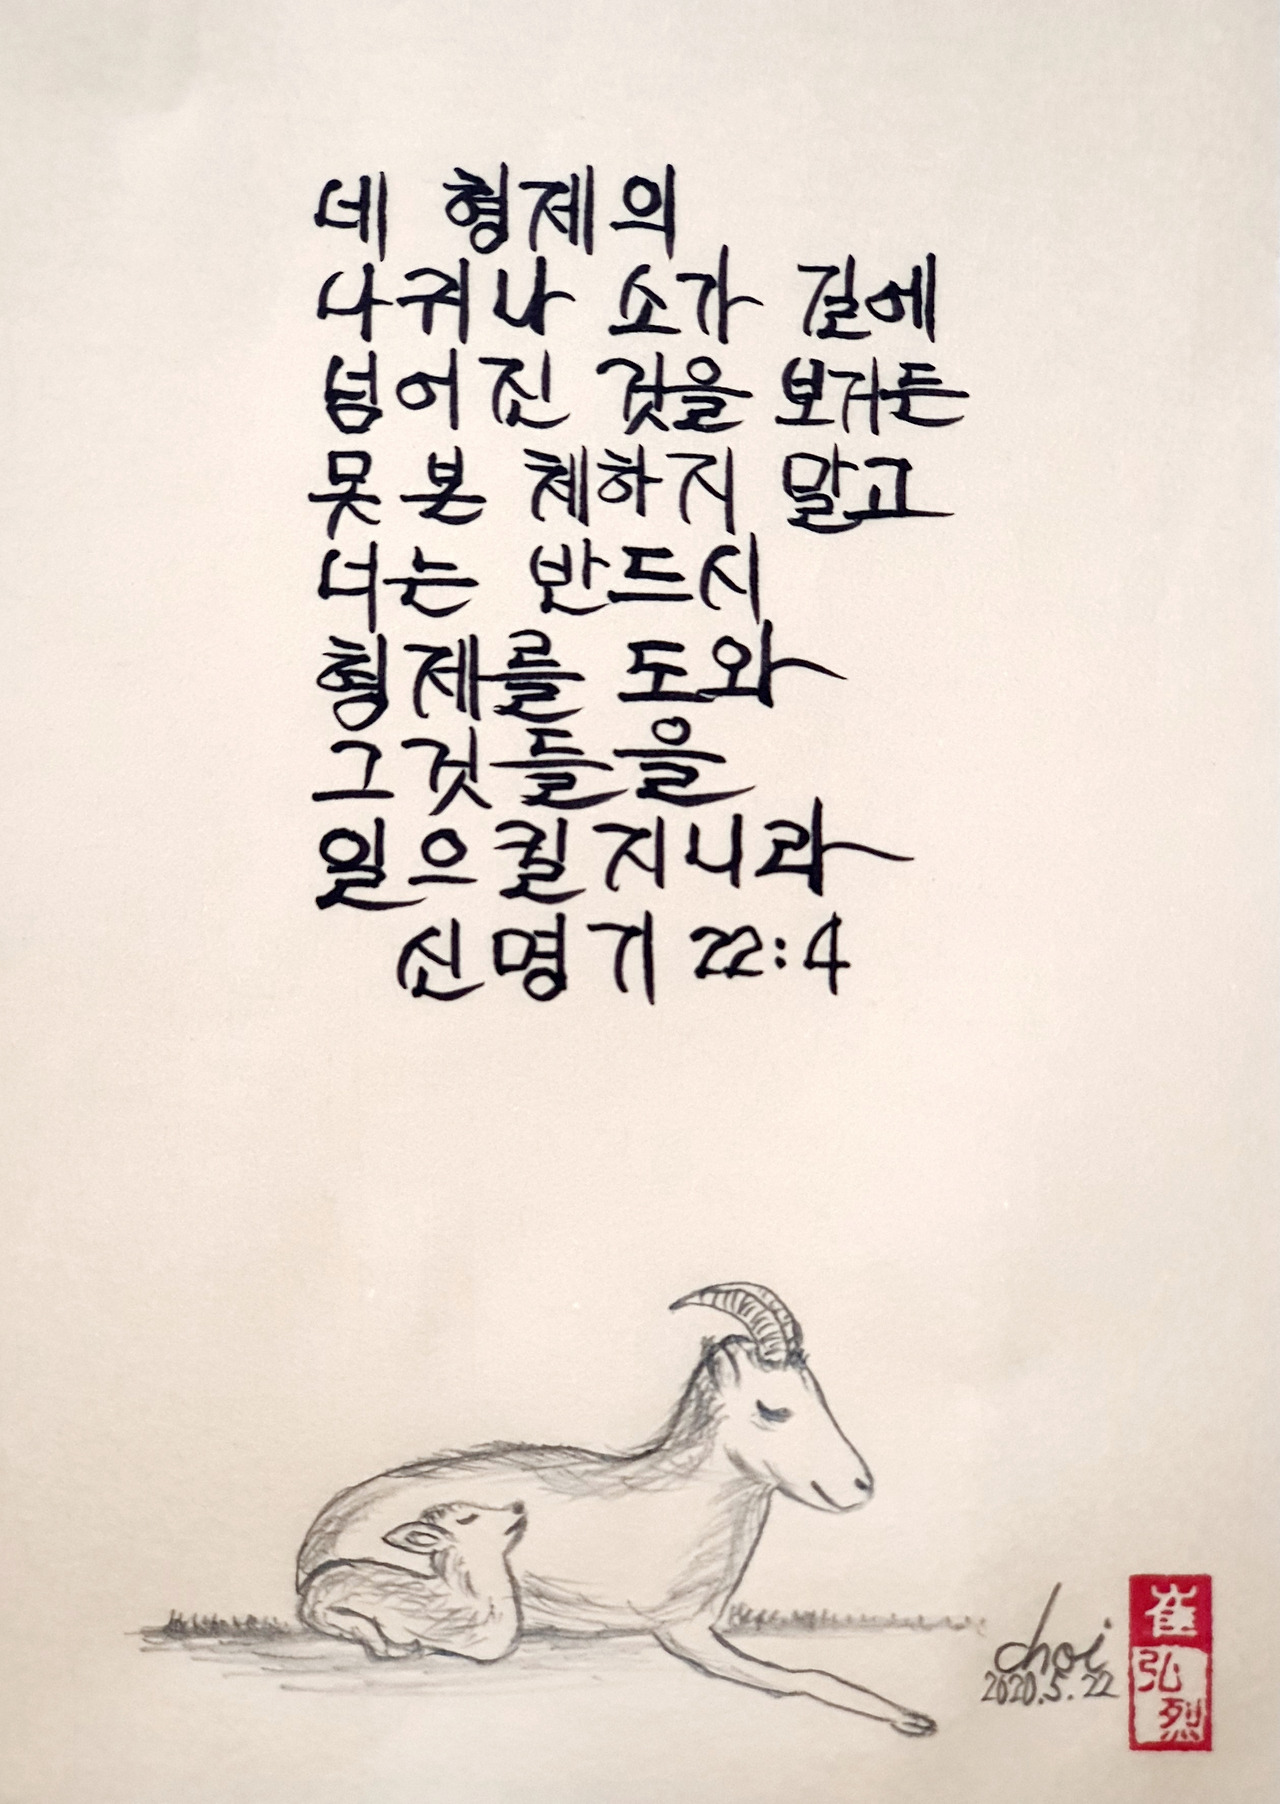 네 형제의
나귀나 소가 길에
넘어진 것을 보거든
못 본 체하지 말고
너는 반드시
형제를 도와
그것들을
일으킬지니라
신명기 22:4
choi
2020.5.22
崔
弘
烈